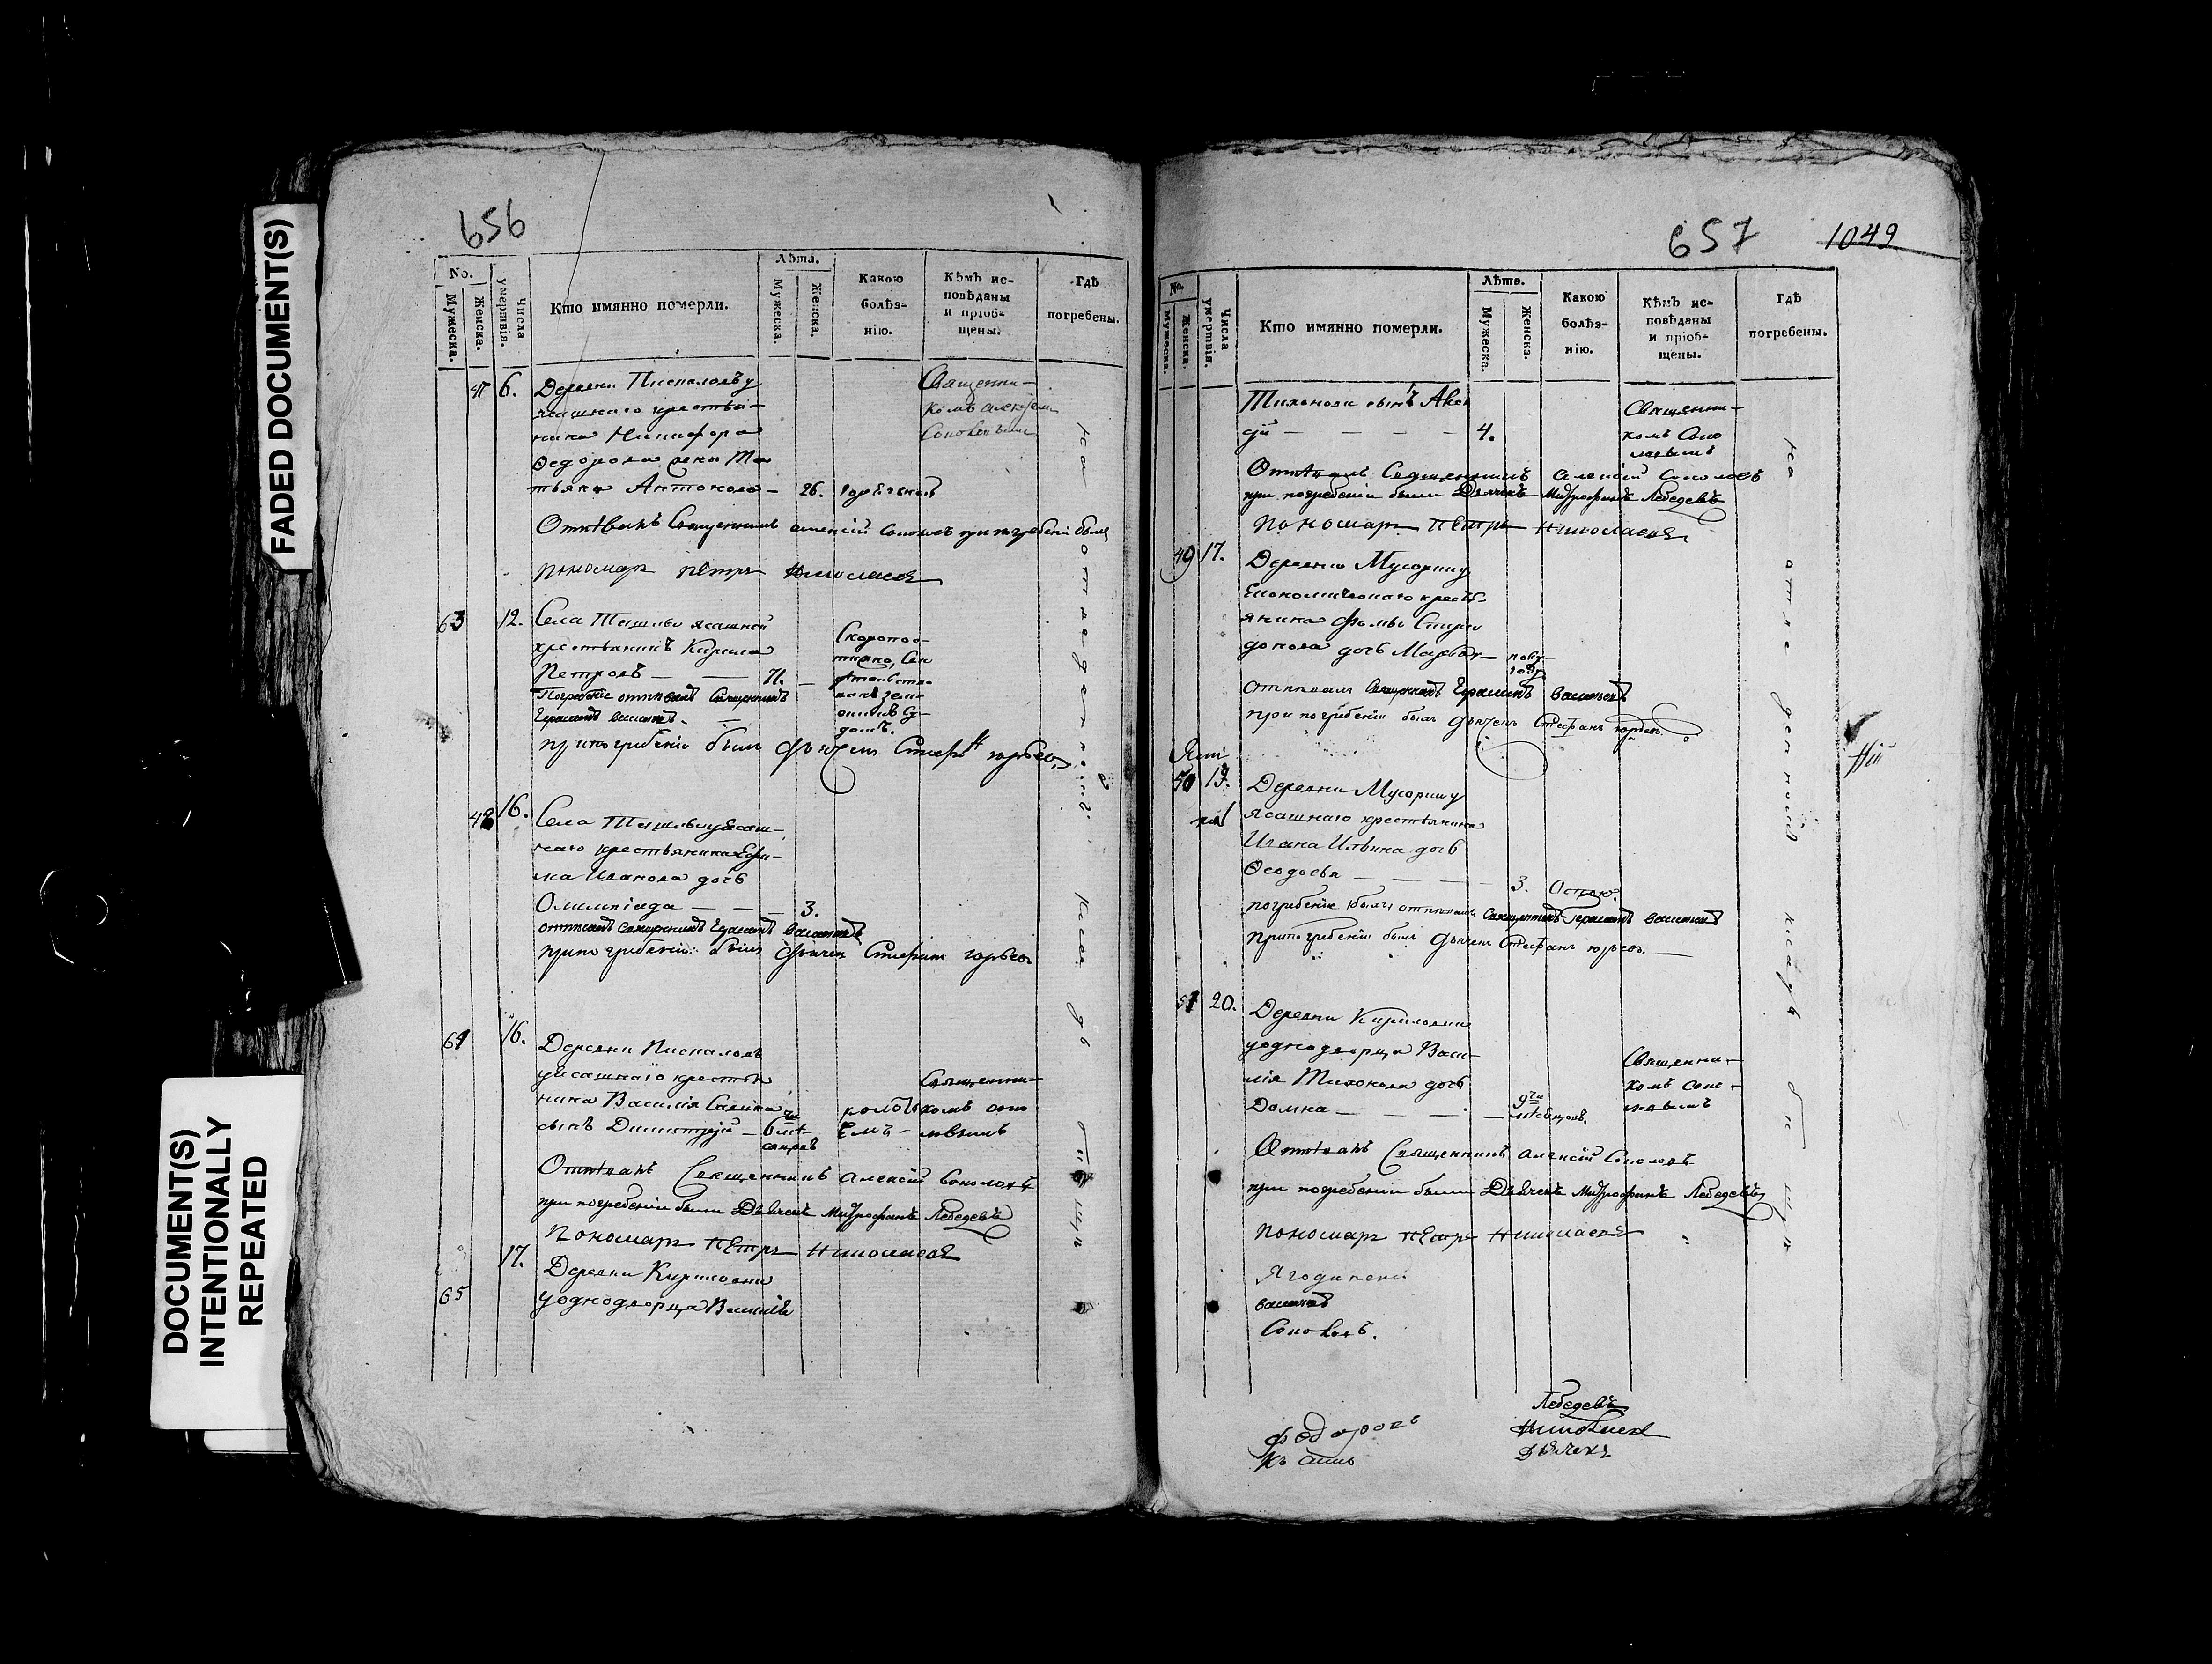 FADED DOCUMENT(S)
DOCUMENT(S)
INTENTIONALLY
REPEATED
656
No.
Мужеска.
Женска.
Числа умертвія.
Кто имянно померли.
Лѣта.
Мужеска.
Женска.
Какою болѣз-
нію.
Кѣмъ ис-
повѣданы
и пріоб-
щены.
Гдѣ
погребены.
47 6. Деревни
ясашнаго крестья-
нина Никифора
Ѳедорова жена Та-
тьяна Антонова — 26. горячкой
Священни-
комъ Алексѣем
Соколовымъ
Отпѣвалъ Священникъ алексій Соколовъ при погребеніи былъ
пономарь пЕтръ Николаевъ
63 12. Села ясашной
крестьянинъ Кирила
Петровъ — — 71. —
Скоропос-
тижно, Сви
дѣтельство
ванъ зем-
скимъ Су-
домъ.
Погребеніе отпѣвалъ Священникъ
Герасимъ васильевъ.
при погребеніи былъ дьячекъ Стефанъ юрьевъ
48 16. Села ясаш-
наго крестьянина Ефи-
ма Иванова дочь
Олимпіада — — — 3.
отпѣвалъ Священникъ Герасимъ васильевъ
при погребеніи былъ дьячекъ Стефанъ юрьевъ
64 16. Деревни
ясашнаго крестья
нина Василія Савина
сынъ Димитрій — 6
Священни-
комъ соко
ловымъ
Отпѣвалъ Священникъ алексій Соколовъ
при погребеніи были Дьячекъ Митрофанъ Лебедевъ
Пономарь пЕтръ Николаевъ
65 17. Деревни Кириловки
однодворца Василія
на отведенномъ
657 1049
No.
Мужеска.
Женска.
Числа умертвія.
Кто имянно померли.
Лѣта.
Мужеска.
Женска.
Какою
болѣз-
нію.
Кѣмъ ис-
повѣданы
и пріоб-
щены.
Гдѣ
погребены.
Тихонова сынъ
— — — — 4.
Священни-
комъ Соко
ловымъ
Отпѣвалъ Священникъ алексій Соколовъ
при погребеніи были Дьячекъ Митрофанъ Лебедевъ
пономарь пЕтръ Николаевъ
49 17. Деревни Мусорину
Економическаго кресть-
янина Фомы Спири
донова дочь — полу-
году
отпѣвалъ Священникъ Герасимъ васильевъ
при погребеніи былъ дьячекъ Стефанъ юрьевъ.
50 19. Деревни Мусорину
ясашнаго крестьянина
Ивана Ильина дочь
Ѳеодосья — — — — 3. Оспою
погребеніе отпѣвалъ Священникъ Герасимъ васильевъ
при погребеніи былъ дьячекъ Стефанъ юрьевъ. —
51 20. Деревни Кириловки
однодворца Васи-
лія Тихонова дочь
Домна — — — — 9
мѣсецовъ.
Священни-
комъ соко-
ловымъ
Отпѣвалъ Священникъ алексій Соколовъ
при погребеніи были Дьячекъ Митрофанъ Лебедевъ
Пономарь пЕтръ Николаевъ
васильевъ
Соколовъ.
Лебедевъ
Николаевъ
Дьячекъ